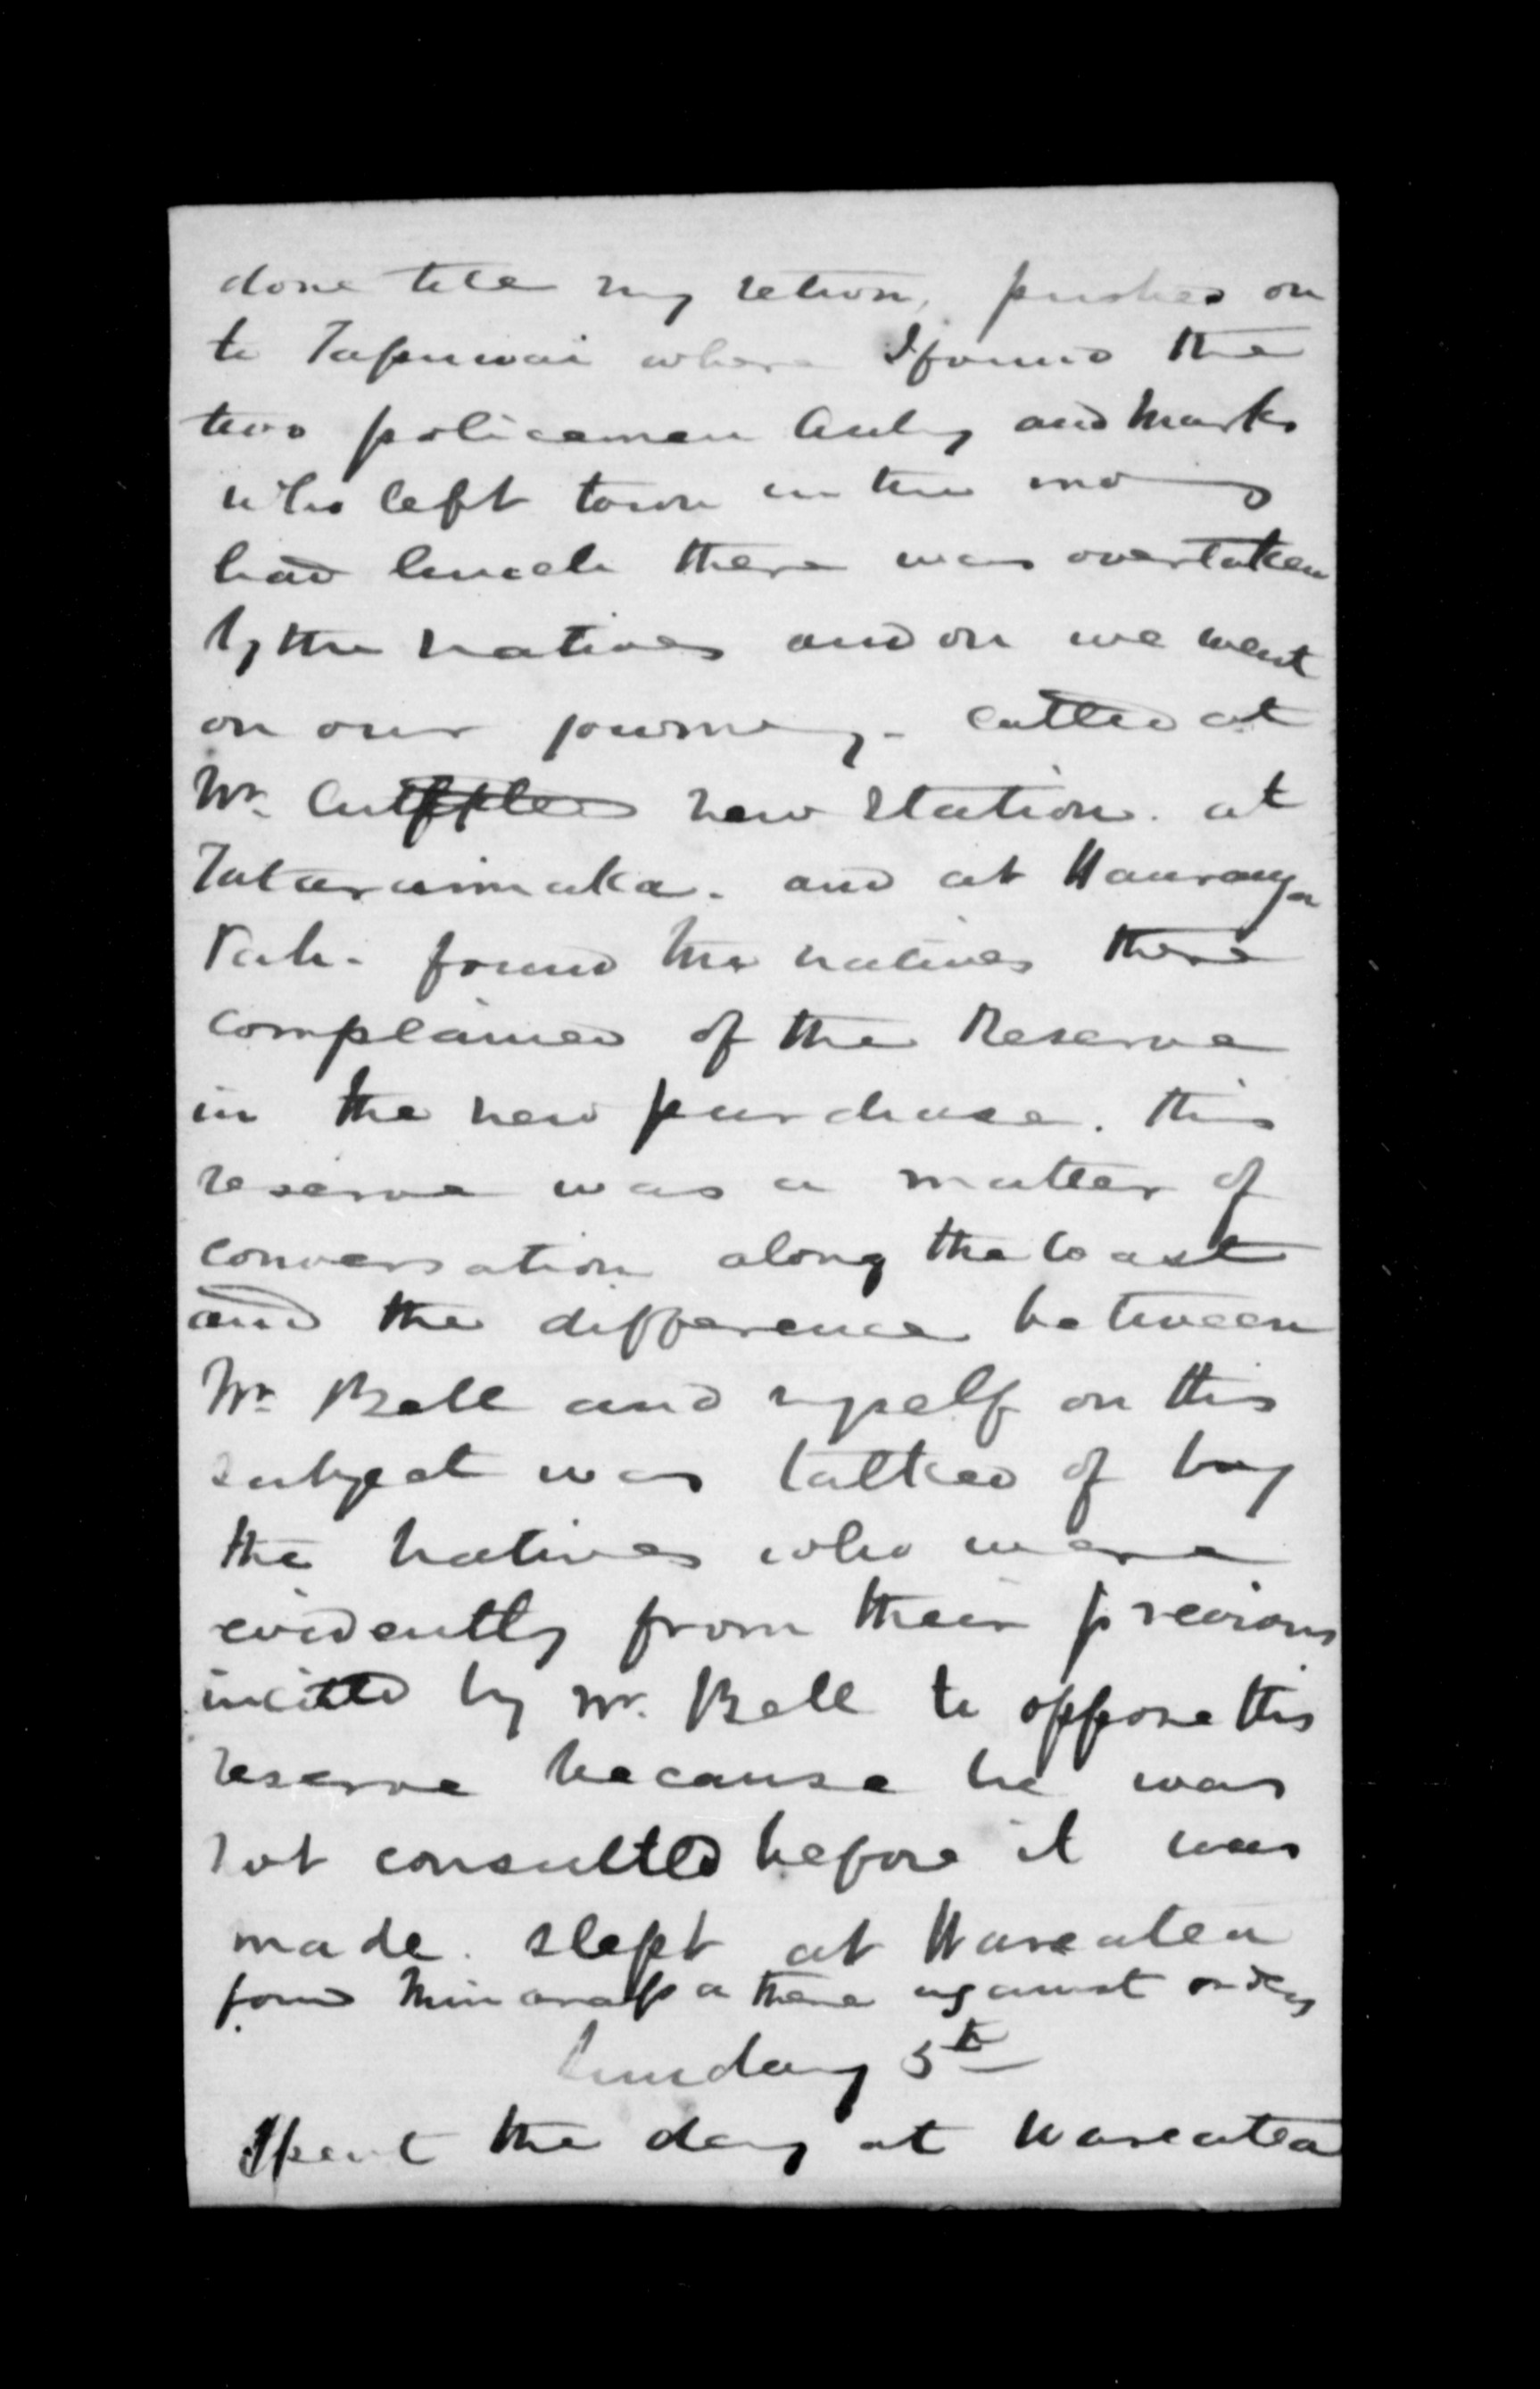 done till my return, pushed on
to Tapuwai where I found the
two policemen Auby and Marks
who left town in the mong
had lunch there was overtaken
by the natives and on we went
on our journey - called at
Mr. new station. at
Tataraimaka. and at Hauranga
Pah. found the natives there
complained of the Reserve
in the new purchase. this
reserve was a matter of
conversation along the Coast
and the difference between
Mr Bell and myself on this
subject was talked of by
the natives who were
evidently from their previous
incited by Mr. Bell to oppose this
reserve because he was
not consulted before it was
made. slept at Wareatea
found Minarapa there against orders
Sunday 5th
Spent the day at Wareatea